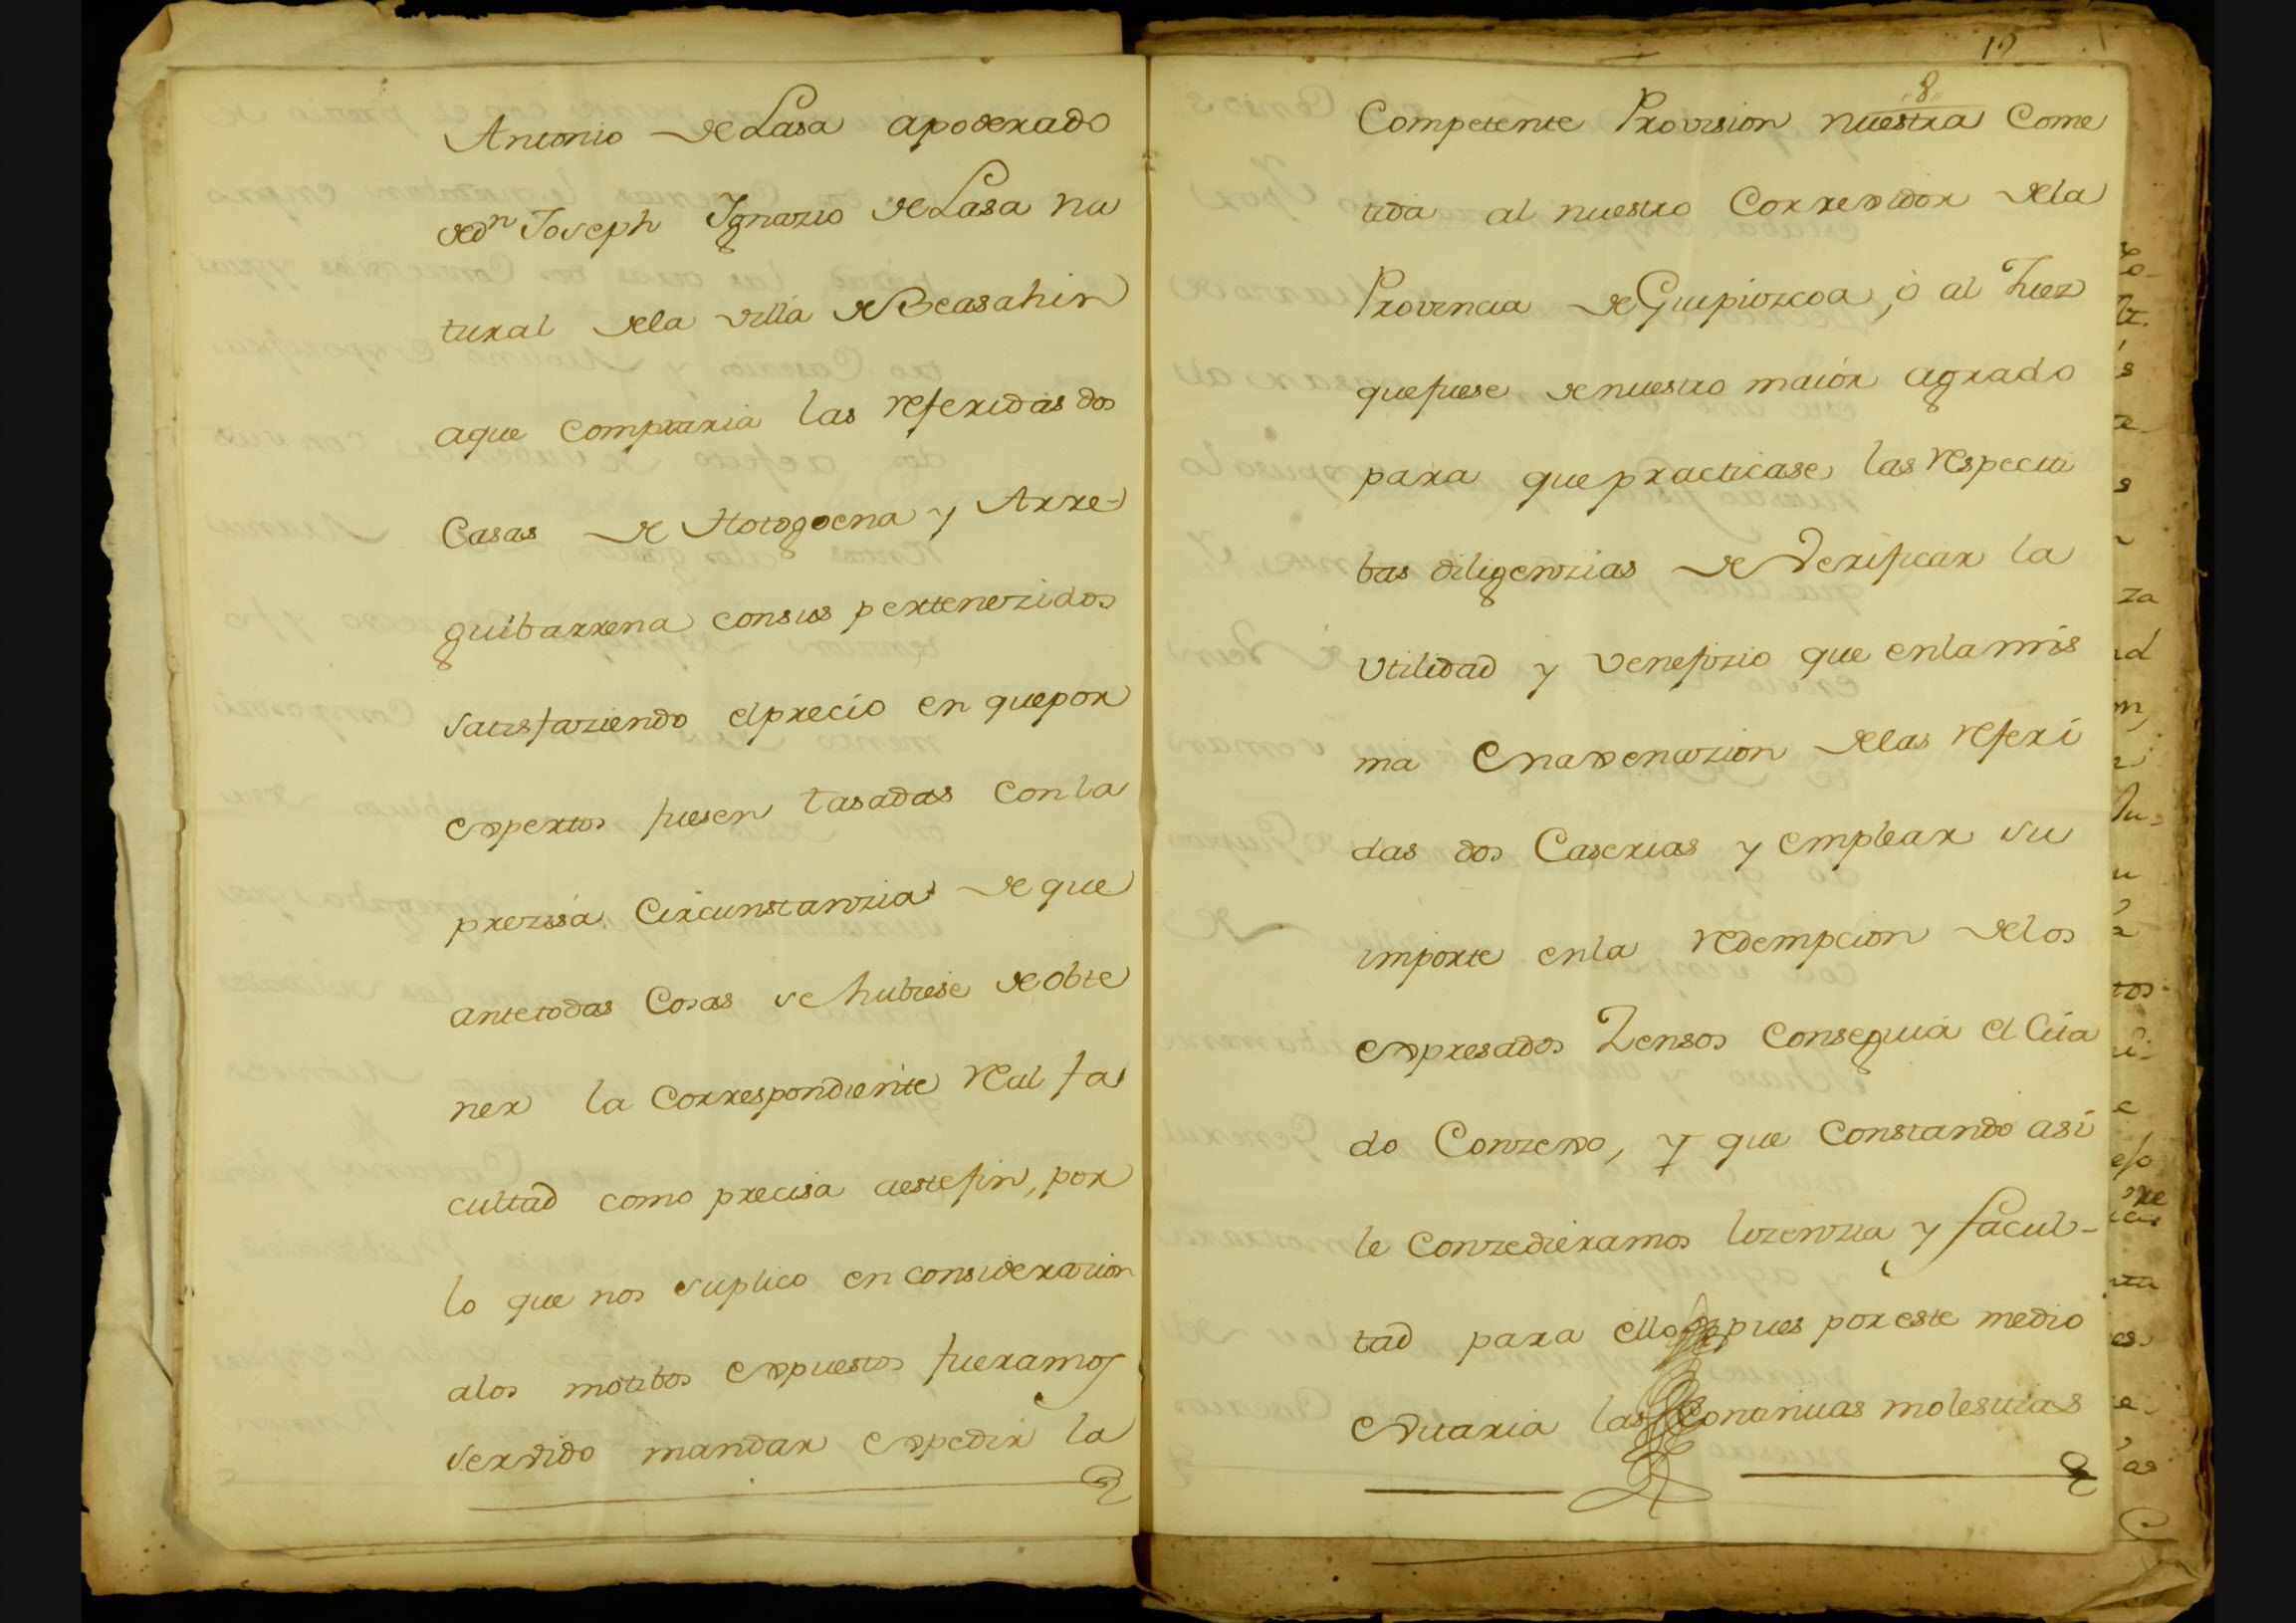 Antonio de Lasa apoderado
de dn Joseph Ignazio de Lasa na
tural dela villa de Beasahin
aque compraria las referidas dos
Casas de Hotogoena y Arre-
guibarrena consus pertenezidos
satisfaziendo el precio en que por
expertos fuesen tasadas con la
prezisa Circunstanzia de que
antetodas Cosas se hubiese de obte
ner la Correspondiente real fa
cultad como precisa a este fin, por
lo que nos suplico en considerazion
alos motibos expuestos fueramos
servido mandar expedir la
8
Competente Provision nuestra Come
tida al nuestro Corregidor dela
Provincia de Guipuzcoa, ò al Juez
que fuese de nuestro maior agrado
para que practicase las respecti
bas diligenzias de Verificar la
Utilidad y venefizio que en la mis
ma Enagenazion delas referi
das dos Caserias y emplear su
importe en la redempcion delos
expresados Zensos Conseguia el Cita
do Conzexo, y que Constando asi
le Conzedieramos lizenzia y facul-
tad para ello pues por este medio
evitaria las Continuas molestias